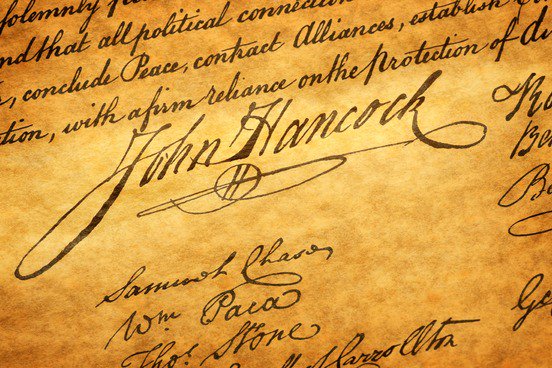 solemnly
and that all political connection
conclude Peace, contract Alliances, establish
tion, with a firm reliance on the Protection of di
John Hancock
Samuel Chase
Wm Paca
Thos. Stone
Carrollton